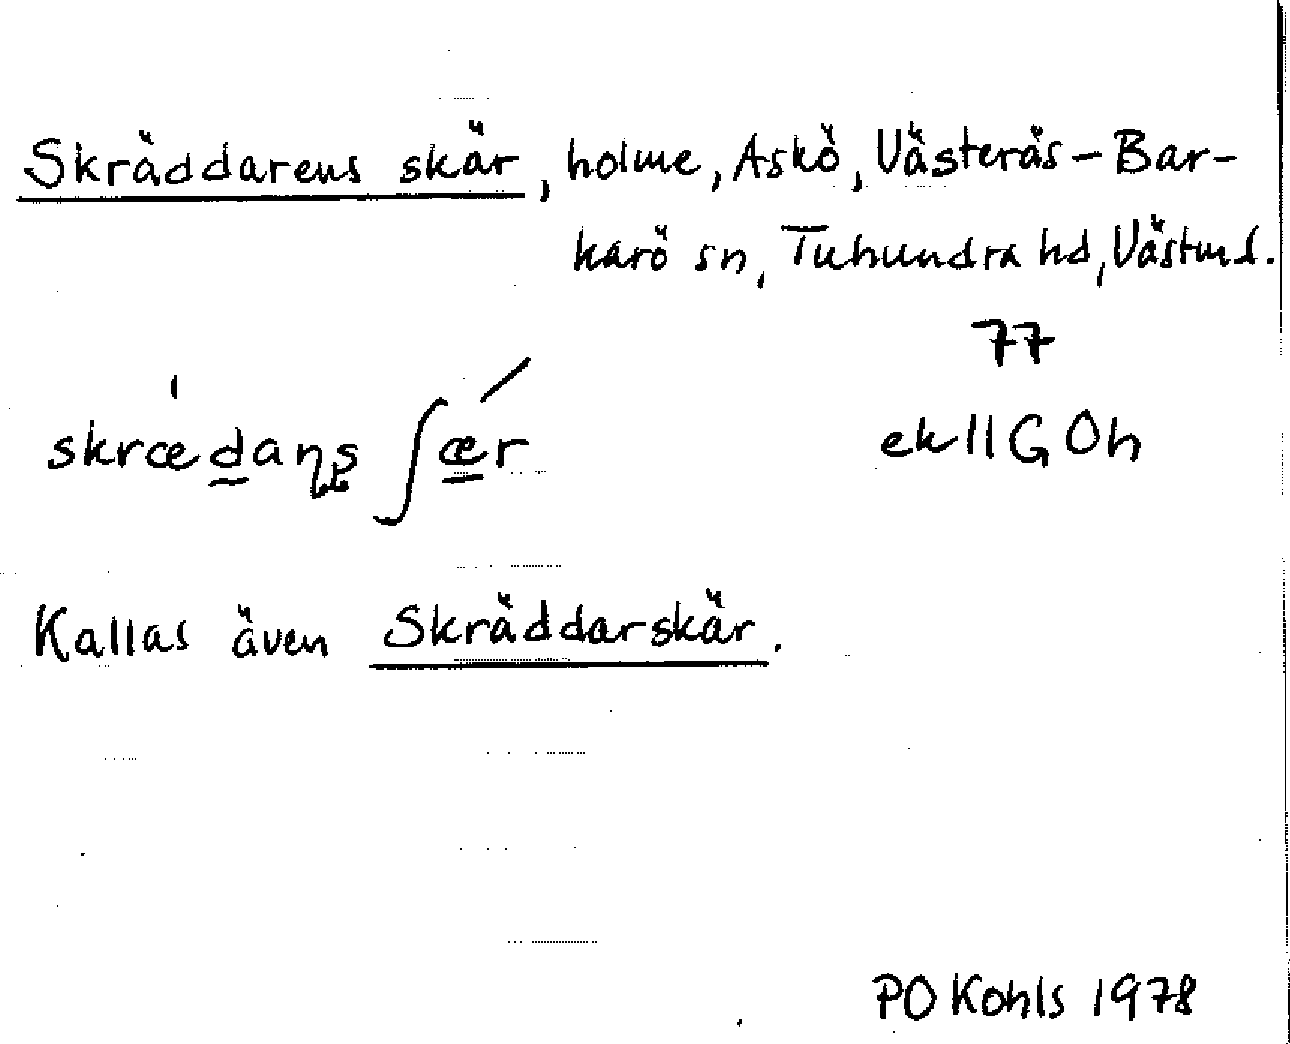 Skräddarens skär, holme, Askö, Västerås-Bar-
karö sn, Tuhundra hd, Västml.
77
skrædaṇṣ ʃær
ek 11 G Oh
Kallas även Skräddarskär.
PO Kohls 1978